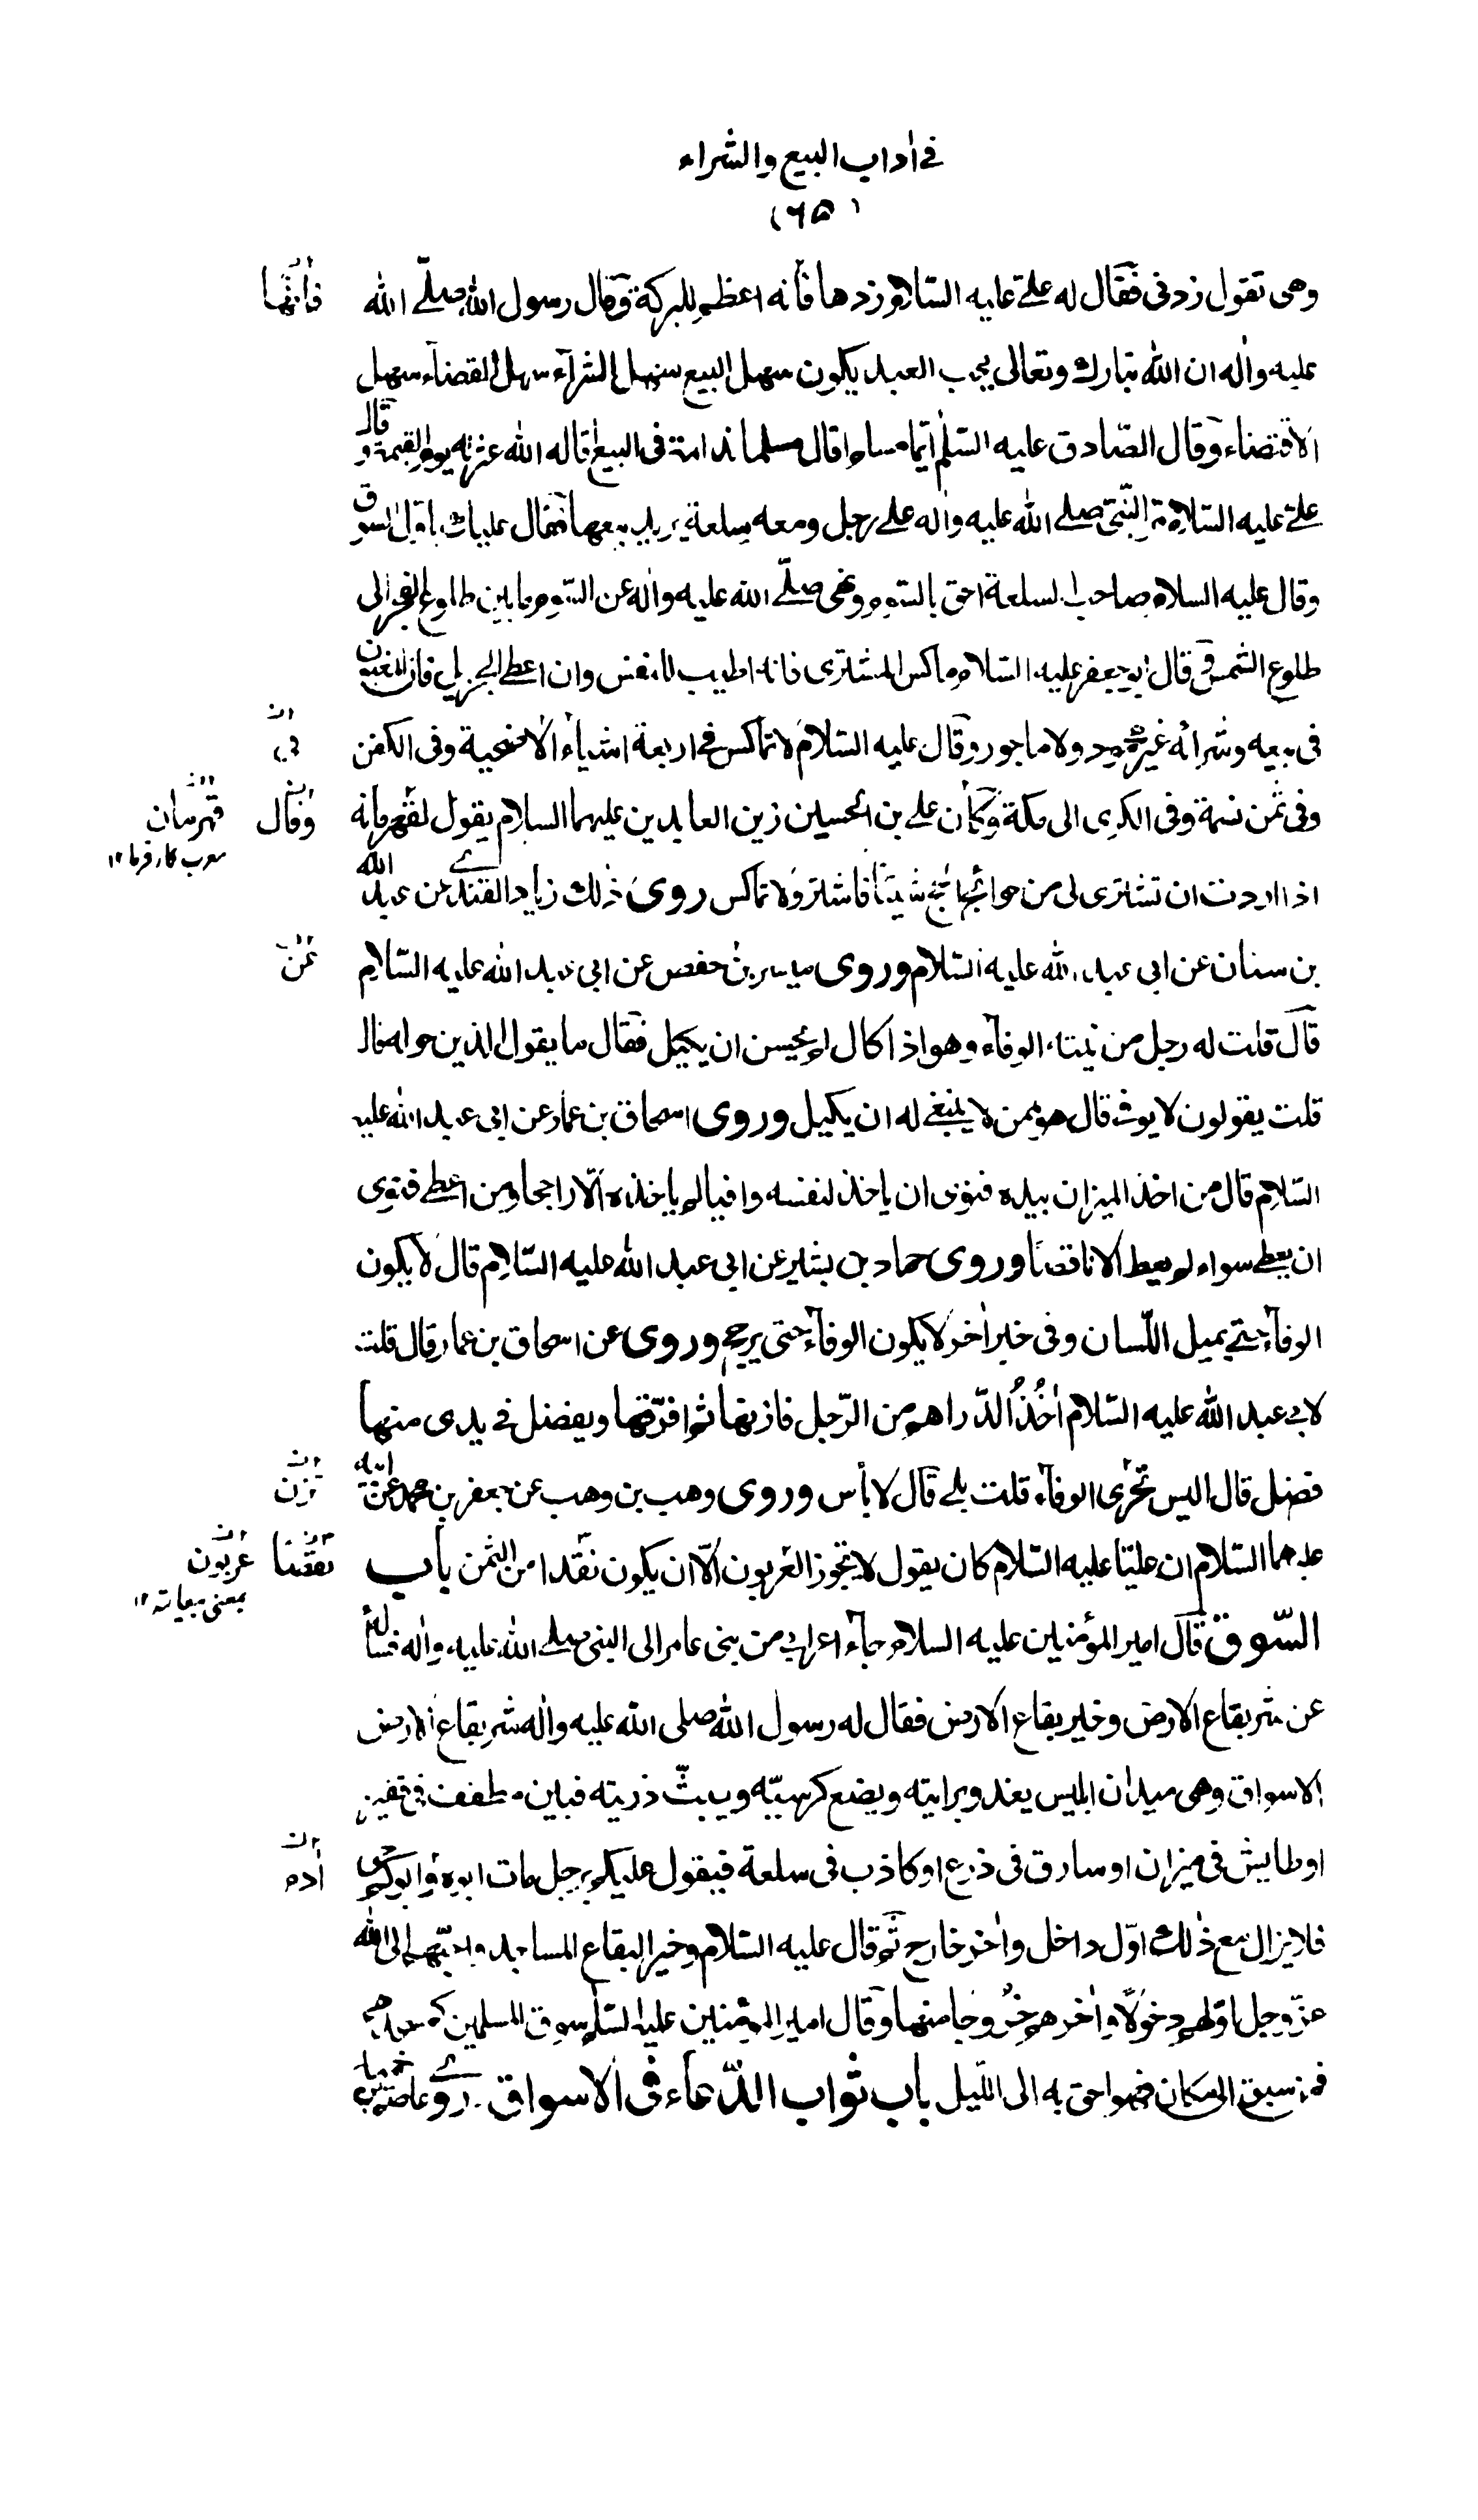 في اداب البيع والشراء
(۶۵)
وهى تقول زدنى فقال له علے عليه السّلام زدها فأنه اعظم للبركة وقال رسول الله صلّے الله
فانها
عليه واله ان الله تبارك وتعالى يحب العبد يكون سهل البيع سهل الشرآء سهل القضآء سهل
الاقتضاء وقال الصّادق عليه السّلم ايّما مسلم اقال مسلما ندامة فى البيع اقاله الله عثرته يوم القيمة و قال
علے عليه السّلام مرّ النّبى صلے الله عليه واله علے رجل ومعه سلعة يريد بيعها فقال عليك باوّل السوق
وقال عليه السلام صاحب السلعة احق بالسّوم ونهى صلّے الله عليه واله عن السّوم ما بين طلوع الفجر الى
طلوع الشمس وقال ابو جعفر عليه السّلام ماكس المشترى فانه اطيب للنفس وان اعطى الجزيل فان المغبون
فى بيعه وشرائه غير محمود ولا ماجور وقال عليه السّلام لا تماكس فے اربعة اشياء الاضحية وفى الكفن
ان
في
وفى ثمن نسمة وفى الكرى الى مكة وكأن علے بن الحسين زين العابدين عليهما السلام يقول لقهرمانه
وقال
قهرمان
معرب كار فرما ١٢
اذا اردت ان تشترى لى من حوائج الحج شيئا فاشتر ولا تماكس روى ذلك زياد القندے عن عبد الله
بن سنان عن ابى عبد الله عليه السّلام وروى ميسر بن حفص عن ابى عبد الله عليه السّلام
عمّن
قال قلت له رجل من نيته الوفآء وهو اذا كال لم يحسن ان يكيل فقال ما يقول الذين حوله قال
قلت يقولون لا يوفے قال هو ممن لا ينبغے له ان يكيل وروى اسحاق بن عمار عن ابى عبد الله عليه
السّلام قال من اخذ الميزان بيده فنوى ان ياخذ لنفسه وافيا لم ياخذه الّا راجحا ومن اعطے فنوى
ان يعطے سواء لم يعط الا ناقصًا وروى حماد بن بشير عن ابى عبد الله عليه السّلام قال لا يكون
الوفآء حتے يميل اللّسان وفى خبر اخر لا يكون الوفآء حتى يرجح وروى عن اسحاق بن عمار قال قلت
لابے عبد الله عليه السّلام اٰخُذُ الدّراهم من الرّجل فازنها ثم افرّقها ويفضل فے يدى منها
فضل قال اليس تحرّى الوفآء قلت بلے قال لا بأس وروى وهب بن وهب عن جعفر بن محمد عن ابيه
تزن
عليهما السّلام ان عليّا عليه السّلام كان يقول لا تجوز العربون الّا ان يكون نقدا من الثمن باب
نقضا
عربون
بمعنى بيعانه ١٢
السّوق قال امير المؤمنين عليه السلام جآء اعرابے من بنى عامر الى النبى صلے الله عليه واله فسأله
عن شر بقاع الارض وخير بقاع الارض فقال له رسول الله صلى الله عليه واله شر بقاع الارض
الاسواق وهى ميدان ابليس يغدو برايته ويضع كرسيّه ويبثّ ذريته فبين مطفف فى قفيز
او طايش فى ميزان او سارق فى ذرع او كاذب فى سلعة فيقول عليكم برجل مات ابوه وابوكم حى
اٰدم
فلا يزال مع ذلك اوّل داخل واٰخر خارج ثم قال عليه السّلام وخير البقاع المساجد واحبّهم الى الله
عزّوجل اوّلهم دخولًا واٰخرهم خُروجًا منها وقال امير المؤمنين عليه السّلم سوق المسلمين كمسجدهم
فمن سبق الى مكان فهو احق به الى اللّيل باب ثواب الدّعاء فى الاسواق روے عاصم بن حميد